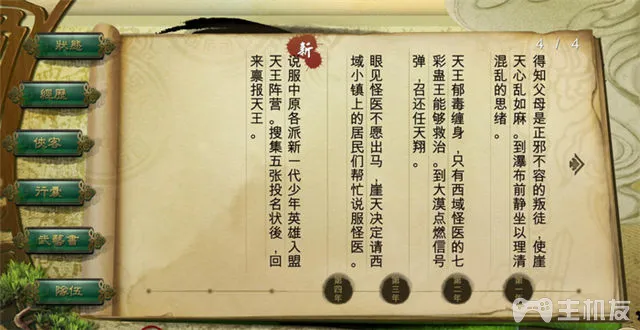 狀態
經歷
俠客
行囊
武藝書
隊伍
4/4
得知父母是正邪不容的叛徒，使崖
天心乱如麻。到瀑布前静坐以理清
混乱的思绪。
天王郁毒缠身，只有西域怪医的七
彩蛊王能够救治。到大漠点燃信号
弹，召还任天翔。
眼见怪医不愿出马，崖天决定请西
域小镇上的居民们帮忙说服怪医。
新
说服中原各派新一代少年英雄入盟
天王阵营。搜集五张投名状後，回
来禀报天王。
第一
第二年
第三年
第四年
主机友